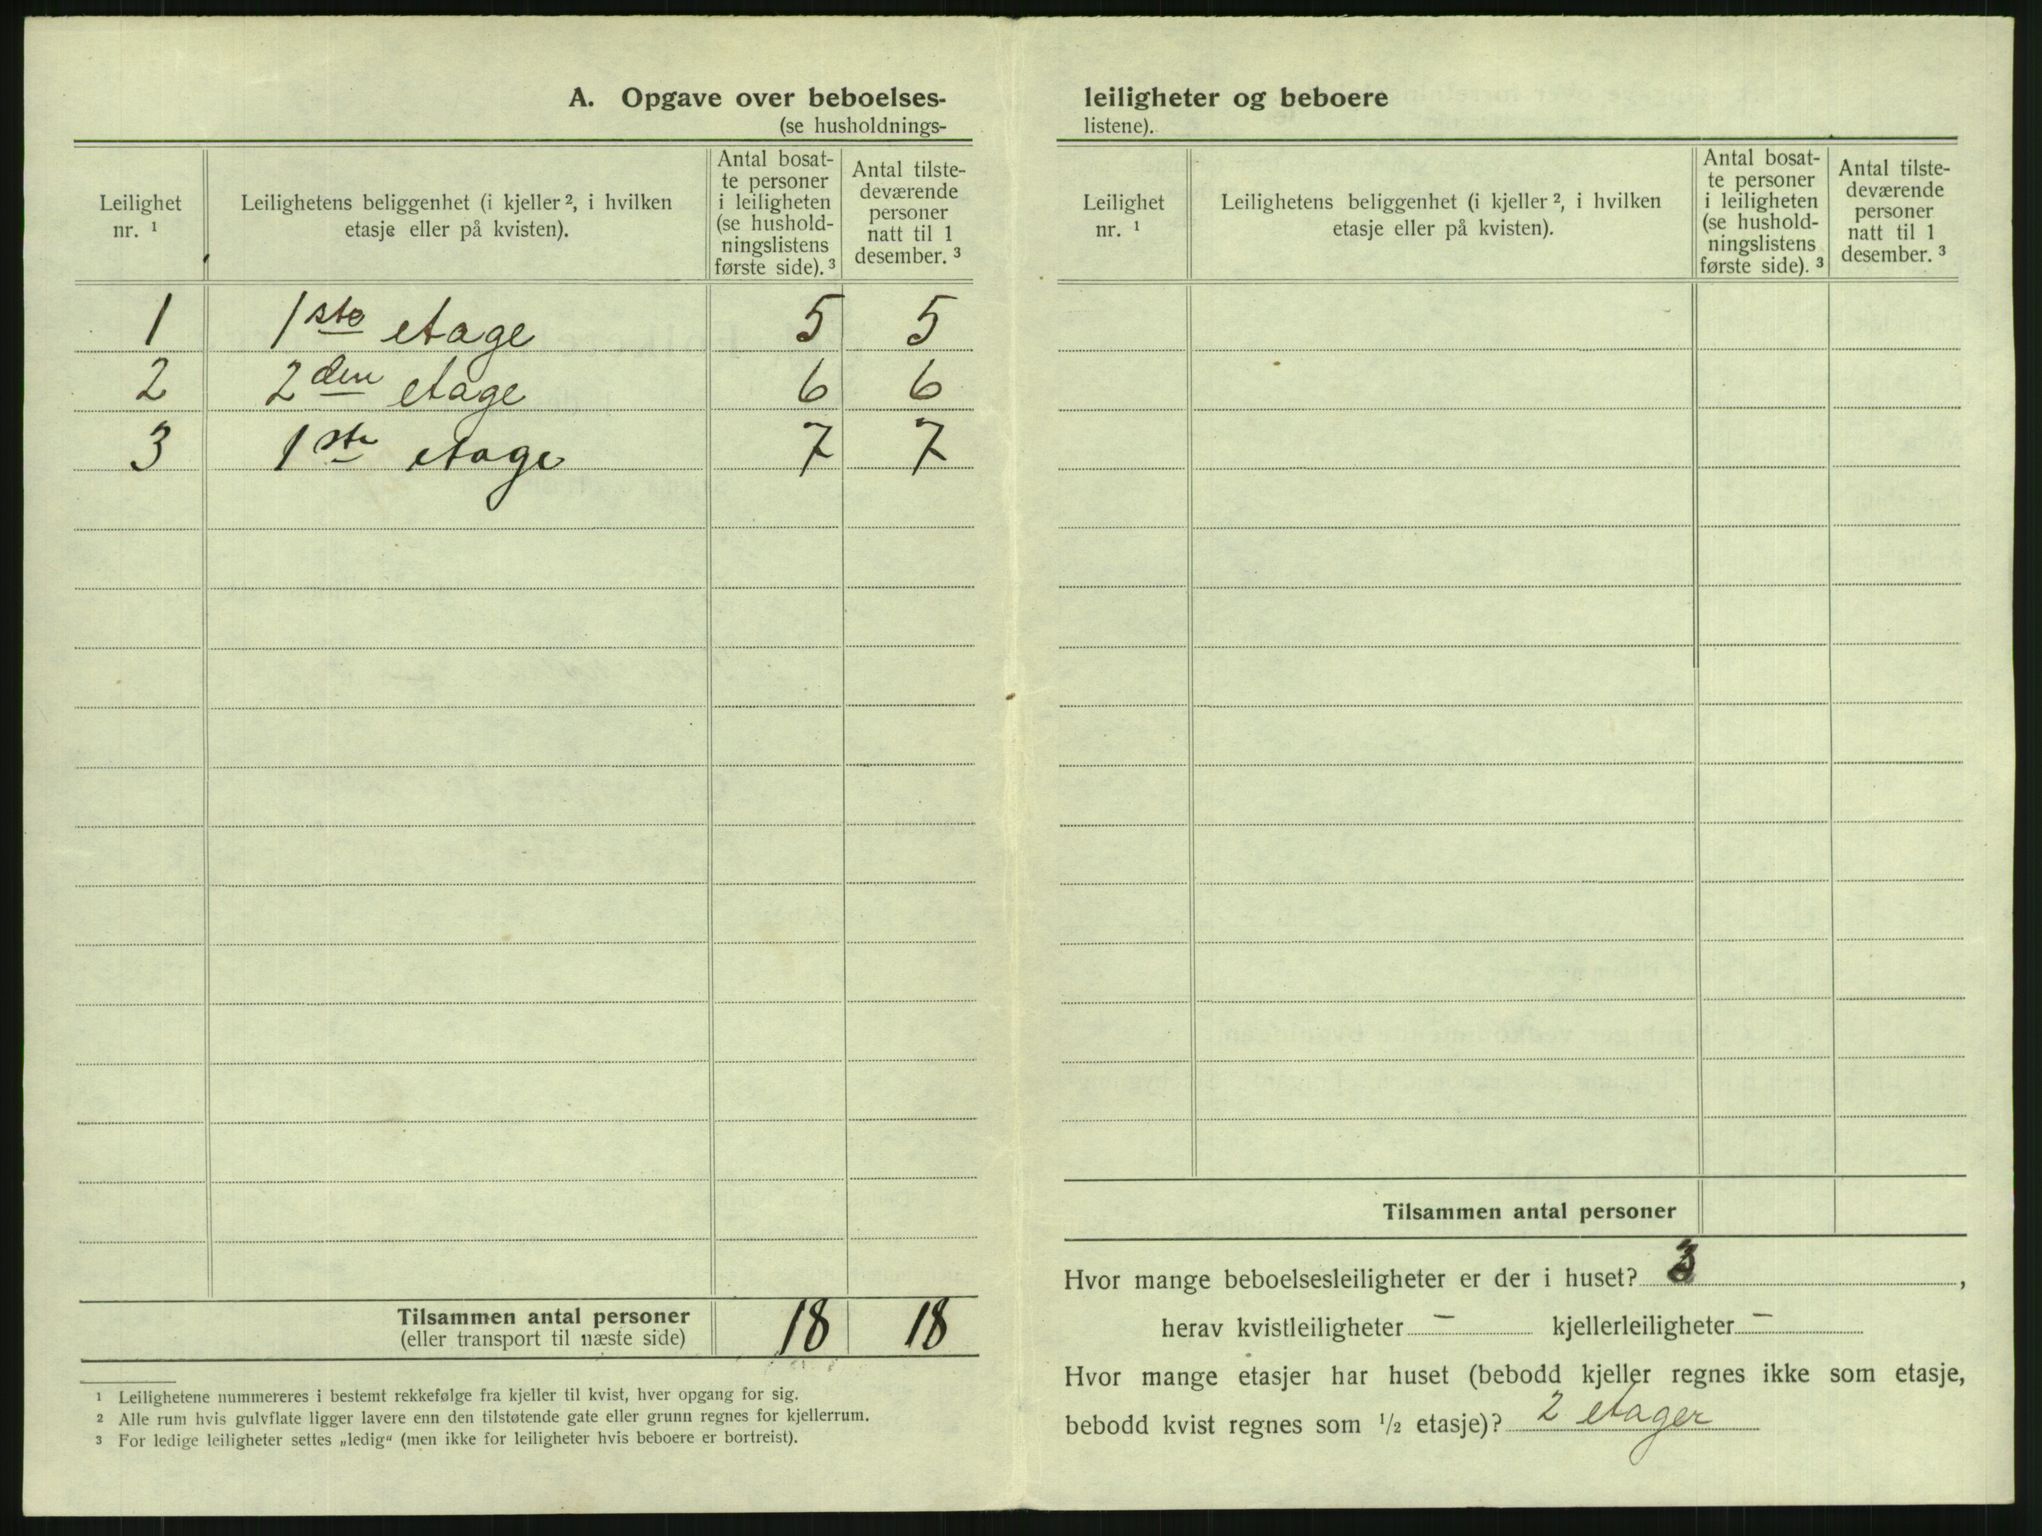 A. Opgave over beboelses-
(se husholdnings-
Leilighet nr. 1
Leilighetens beliggenhet (i kjeller 2, i hvilken etasje eller på kvisten).
Antal bosat-
te personer
i leiligheten
(se hushold-
ningslistens
første side). 3
Antal tilste-
deværende
personer
natt til 1
desember. 3
1 1ste etage 5 5
2 2den etage 6 6
3 1ste etage 7 7
Tilsammen antal personer 18 18
(eller transport til næste side)
1 Leilighetene nummereres i bestemt rekkefølge fra kjeller til kvist, hver opgang for sig.
2 Alle rum hvis gulvflate ligger lavere enn den tilstøtende gate eller grunn regnes for kjellerrum.
3 For ledige leiligheter settes „ledig“ (men ikke for leiligheter hvis beboere er bortreist).
leiligheter og beboere
listene).
Leilighet nr. 1
Leilighetens beliggenhet (i kjeller 2, i hvilken etasje eller på kvisten).
Antal bosat-
te personer
i leiligheten
(se hushold-
ningslistens
første side). 3
Antal tilste-
deværende
personer
natt til 1
desember. 3
Tilsammen antal personer
Hvor mange beboelsesleiligheter er der i huset? 3,
herav kvistleiligheter — kjellerleiligheter —
Hvor mange etasjer har huset (bebodd kjeller regnes ikke som etasje,
bebodd kvist regnes som 1/2 etasje)? 2 etager